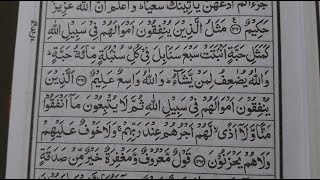 جزءا ثم ادعهن ياتينك سعيا و اعلم ان الله عزيز
حكيم ﴿۲۶۰﴾ مثل الذين ينفقون اموالهم في سبيل الله
كمثل حبة انبتت سبع سنابل في كل سنبلة مائة حبة
والله يضعف لمن يشاء والله واسع عليم ﴿۲۶۱﴾ الذين
ينفقون اموالهم في سبيل الله ثم لا يتبعون ما انفقوا
منا ولا اذى لهم اجرهم عند ربهم ولا خوف عليهم
ولا هم يحزنون ﴿۲۶۲﴾ قول معروف و مغفرة خير من صدقة